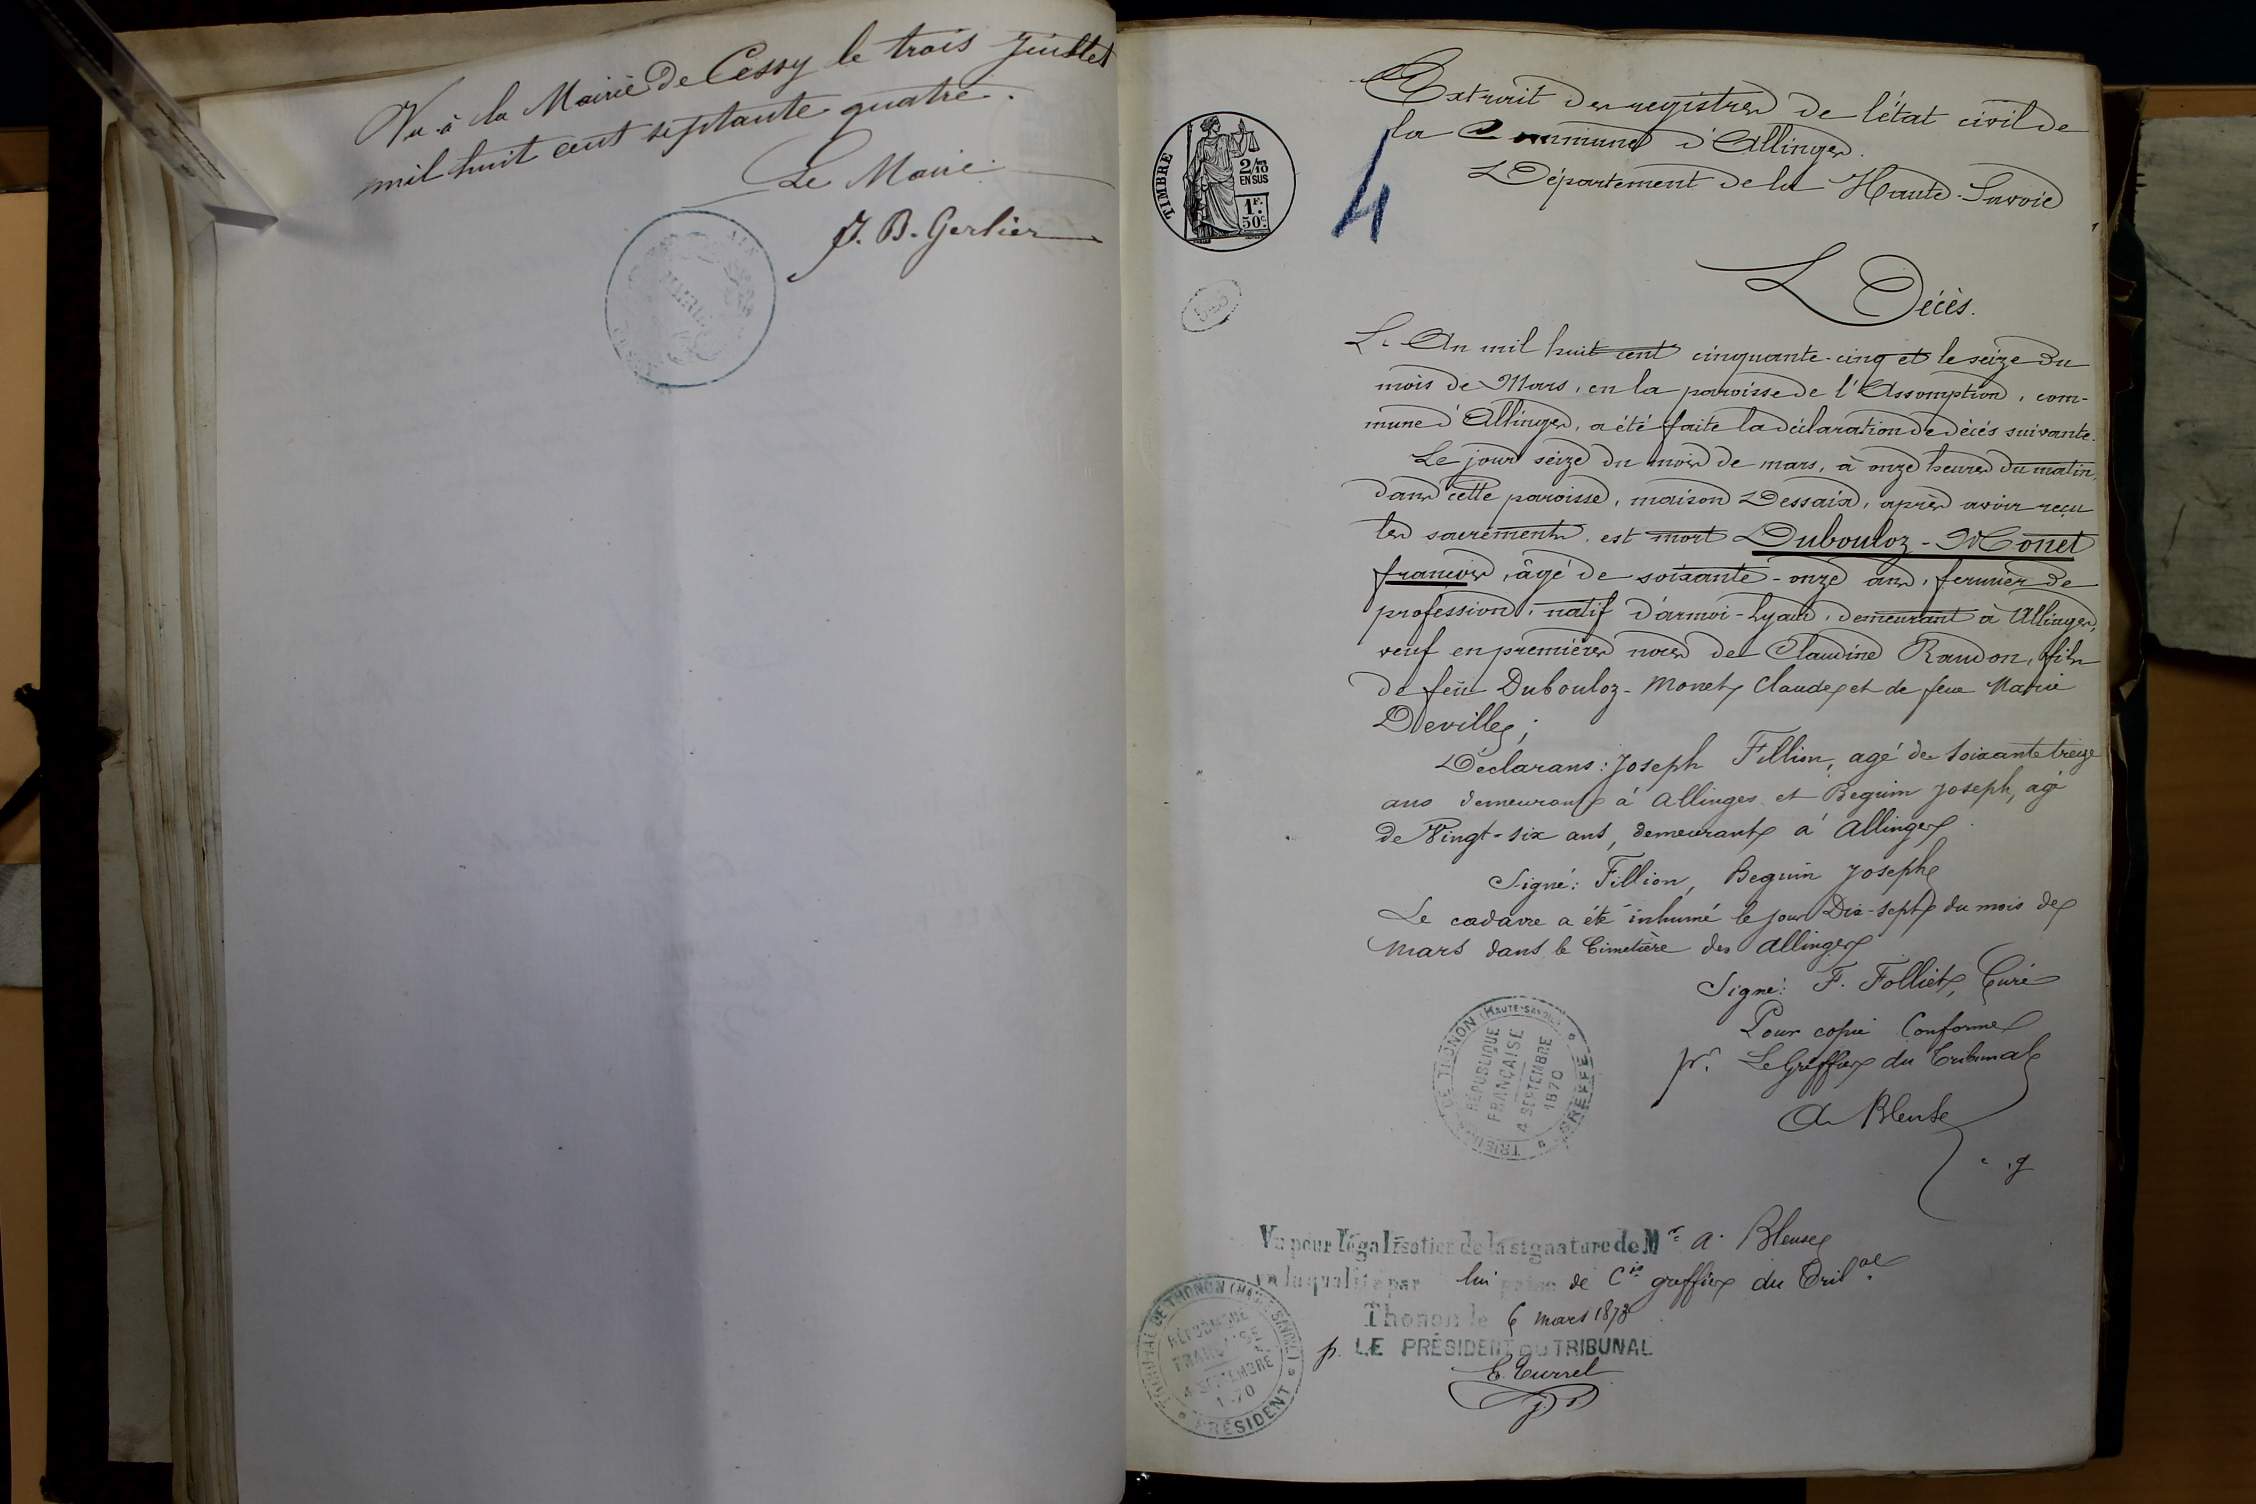 Vu à la Mairie de Cessy le trois Juillet
mil huit cent septante quatre.
Le Maire.
J. B. Gerlier
MAIRIE
TIMBRE
2/10
EN SUS
1F.
50c.
4
Extrait des registres de l'état civil de
la Commune d'Allinges.
Département de la Haute-Savoie
Décès.
L'An mil huit cent cinquante-cinq et le seize du
mois de Mars, en la paroisse de l'Assomption, com-
mune d'Allinges, a été faite la déclaration de décès suivante.
Le jour seize du mois de mars, à onze heures du matin,
dans cette paroisse, maison Dessaix, après avoir reçu
les sacrements, est mort Dubouloz-Monet
françois, âgé de soixante-onze ans, fermier de
profession, natif d'armoi-Lyaud, demeurant à Allinges,
veuf en premières noces de Claudine Raudon, fils
de feu Dubouloz-Monet Claude et de feue Marie
Deville;
Déclarans: Joseph Fillion, agé de Soixante treize
ans demeurant à Allinges et Beguin Joseph, agé
de Vingt-six ans, demeurant à Allinges.
Signé: Fillion, Beguin Joseph
Le cadavre a été inhumé le jour Dix-sept du mois de
Mars dans le Cimetière des Allinges
Signé: F. Folliet, Curé
Pour copie Conforme
pr. Le Greffier du Tribunal
A. Bleuse
TRIBUNAL DE THONON (HAUTE-SAVOIE)
RÉPUBLIQUE
FRANÇAISE
4 SEPTEMBRE
1870
GREFFE
Vu pour légalisation de la signature de Mr A. Bleuse
en la qualité par lui prise de Cis greffier du Tribal
Thonon le 6 mars 1873
p. LE PRÉSIDENT DU TRIBUNAL
E. Turrel
TRIBUNAL DE THONON (HAUTE SAVOIE)
RÉPUBLIQUE
FRANÇAISE
4 SEPTEMBRE
1870
PRÉSIDENT